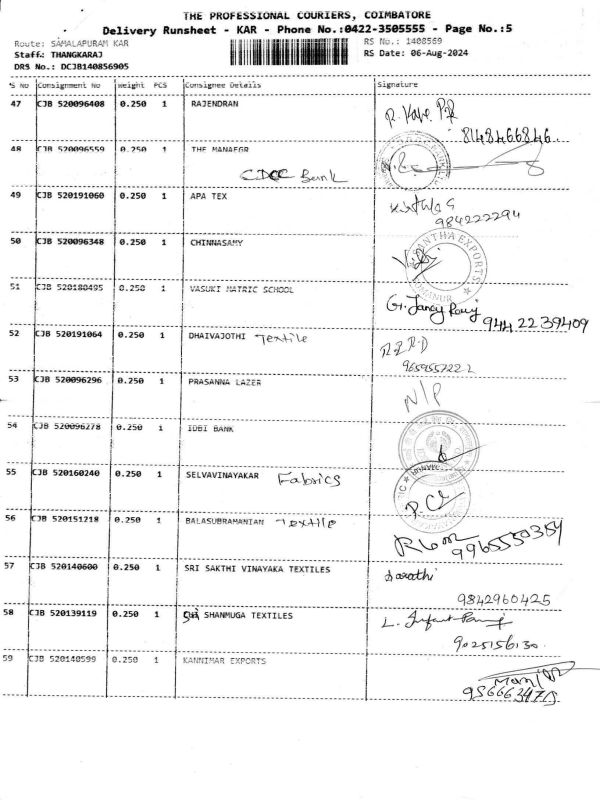 THE PROFESSIONAL COURIERS, COIMBATORE
Delivery Runsheet - KAR - Phone No.:0422-3505555 - Page No.:5
Route: SAMALAPURAM KAR RS No.: 1408569
Staff: THANGKARAJ RS Date: 06-Aug-2024
DRS No.: DCJB140856905
S No Consignment No Weight PCS Consignee Details Signature
47 CJB 520096408 0.250 1 RAJENDRAN
8148466846
48 CJB 520096559 0.250 1 THE MANAEGR
Bank
49 CJB 520191060 0.250 1 APA TEX
984222294
50 CJB 520096348 0.250 1 CHINNASAMY
SANTHA EXPORTS
51 CJB 520180495 0.250 1 VASUKI MATRIC SCHOOL
G. Jancy Rani 9442239409
52 CJB 520191064 0.250 1 DHAIVAJOTHI Textile
9659557222
53 CJB 520096296 0.250 1 PRASANNA LAZER
N/P
54 CJB 520096278 0.250 1 IDBI BANK
55 CJB 520160240 0.250 1 SELVAVINAYAKAR Fabrics
56 CJB 520151218 0.250 1 BALASUBRAMANIAN Textile
9965550354
57 CJB 520140600 0.250 1 SRI SAKTHI VINAYAKA TEXTILES Sarathi
9842960425
58 CJB 520139119 0.250 1 Sri SHANMUGA TEXTILES
9025156130
59 CJB 520140599 0.250 1 KANNIMAR EXPORTS